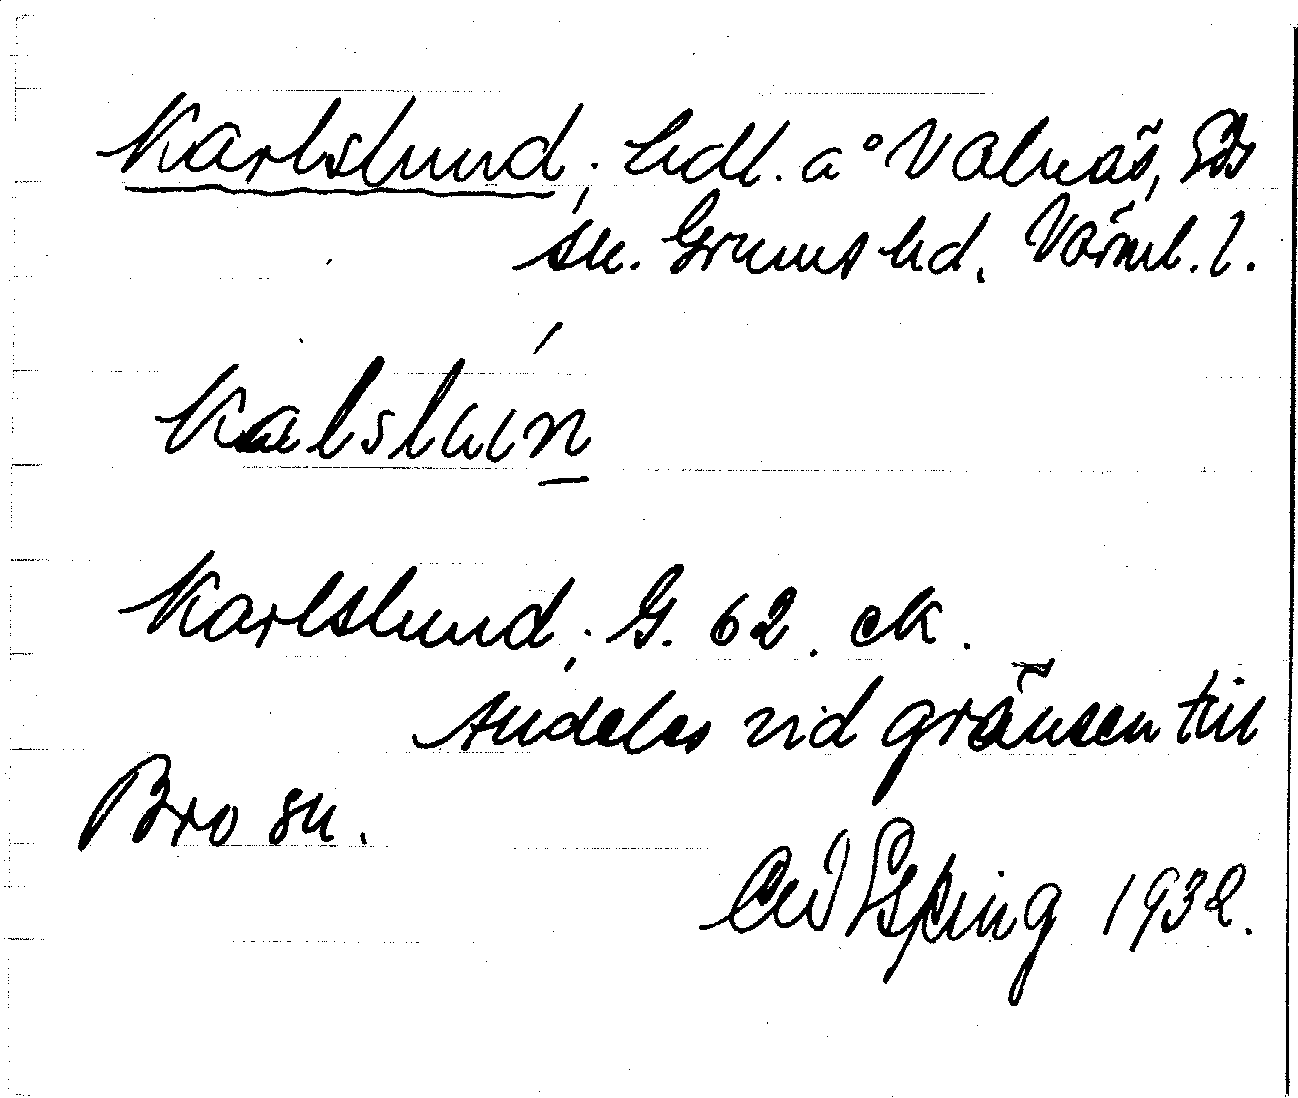 Karlslund; hdl. å Valnäs, Eds
sn. Grums hd. Värml. l.
Karlslund; G. 62. ek.
Aldeles vid gränsen till
Bro sn.
Esping 1932.